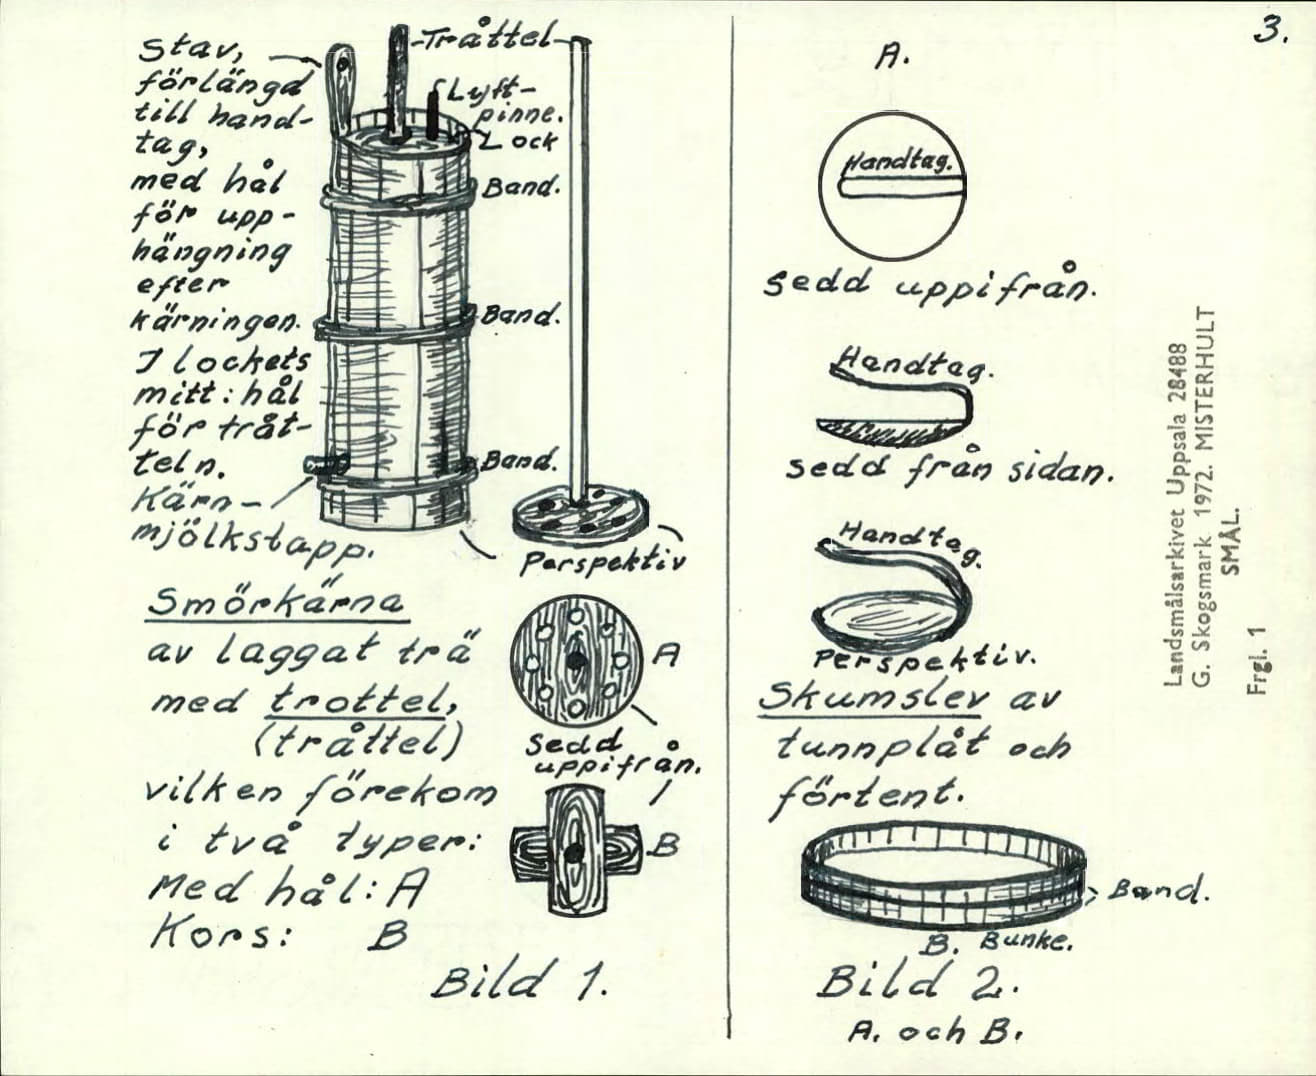 3.
Stav,
förlängd
till hand-
tag,
med hål
för upp-
hängning
efter
kärningen.
I lockets
mitt: hål
för tråt-
teln.
Kärn-
mjölkstapp.
Tråttel
Luft-
pinne.
Lock
Band.
Band.
Band.
Perspektiv
Smörkärna
av laggat trä
med trottel,
(tråttel)
vilken förekom
i två typer:
Med hål: A
Kors: B
A
Sedd
uppifrån.
B
Bild 1.
A.
Handtag.
Sedd uppifrån.
Handtag.
Sedd från sidan.
Handtag.
Perspektiv.
Skumslev av
tunnplåt och
förtent.
Band.
B. Bunke.
Bild 2.
A. och B.
Landsmålsarkivet Uppsala 28488
G. Skogsmark 1972. MISTERHULT
SMÅL.
Frgl. 1